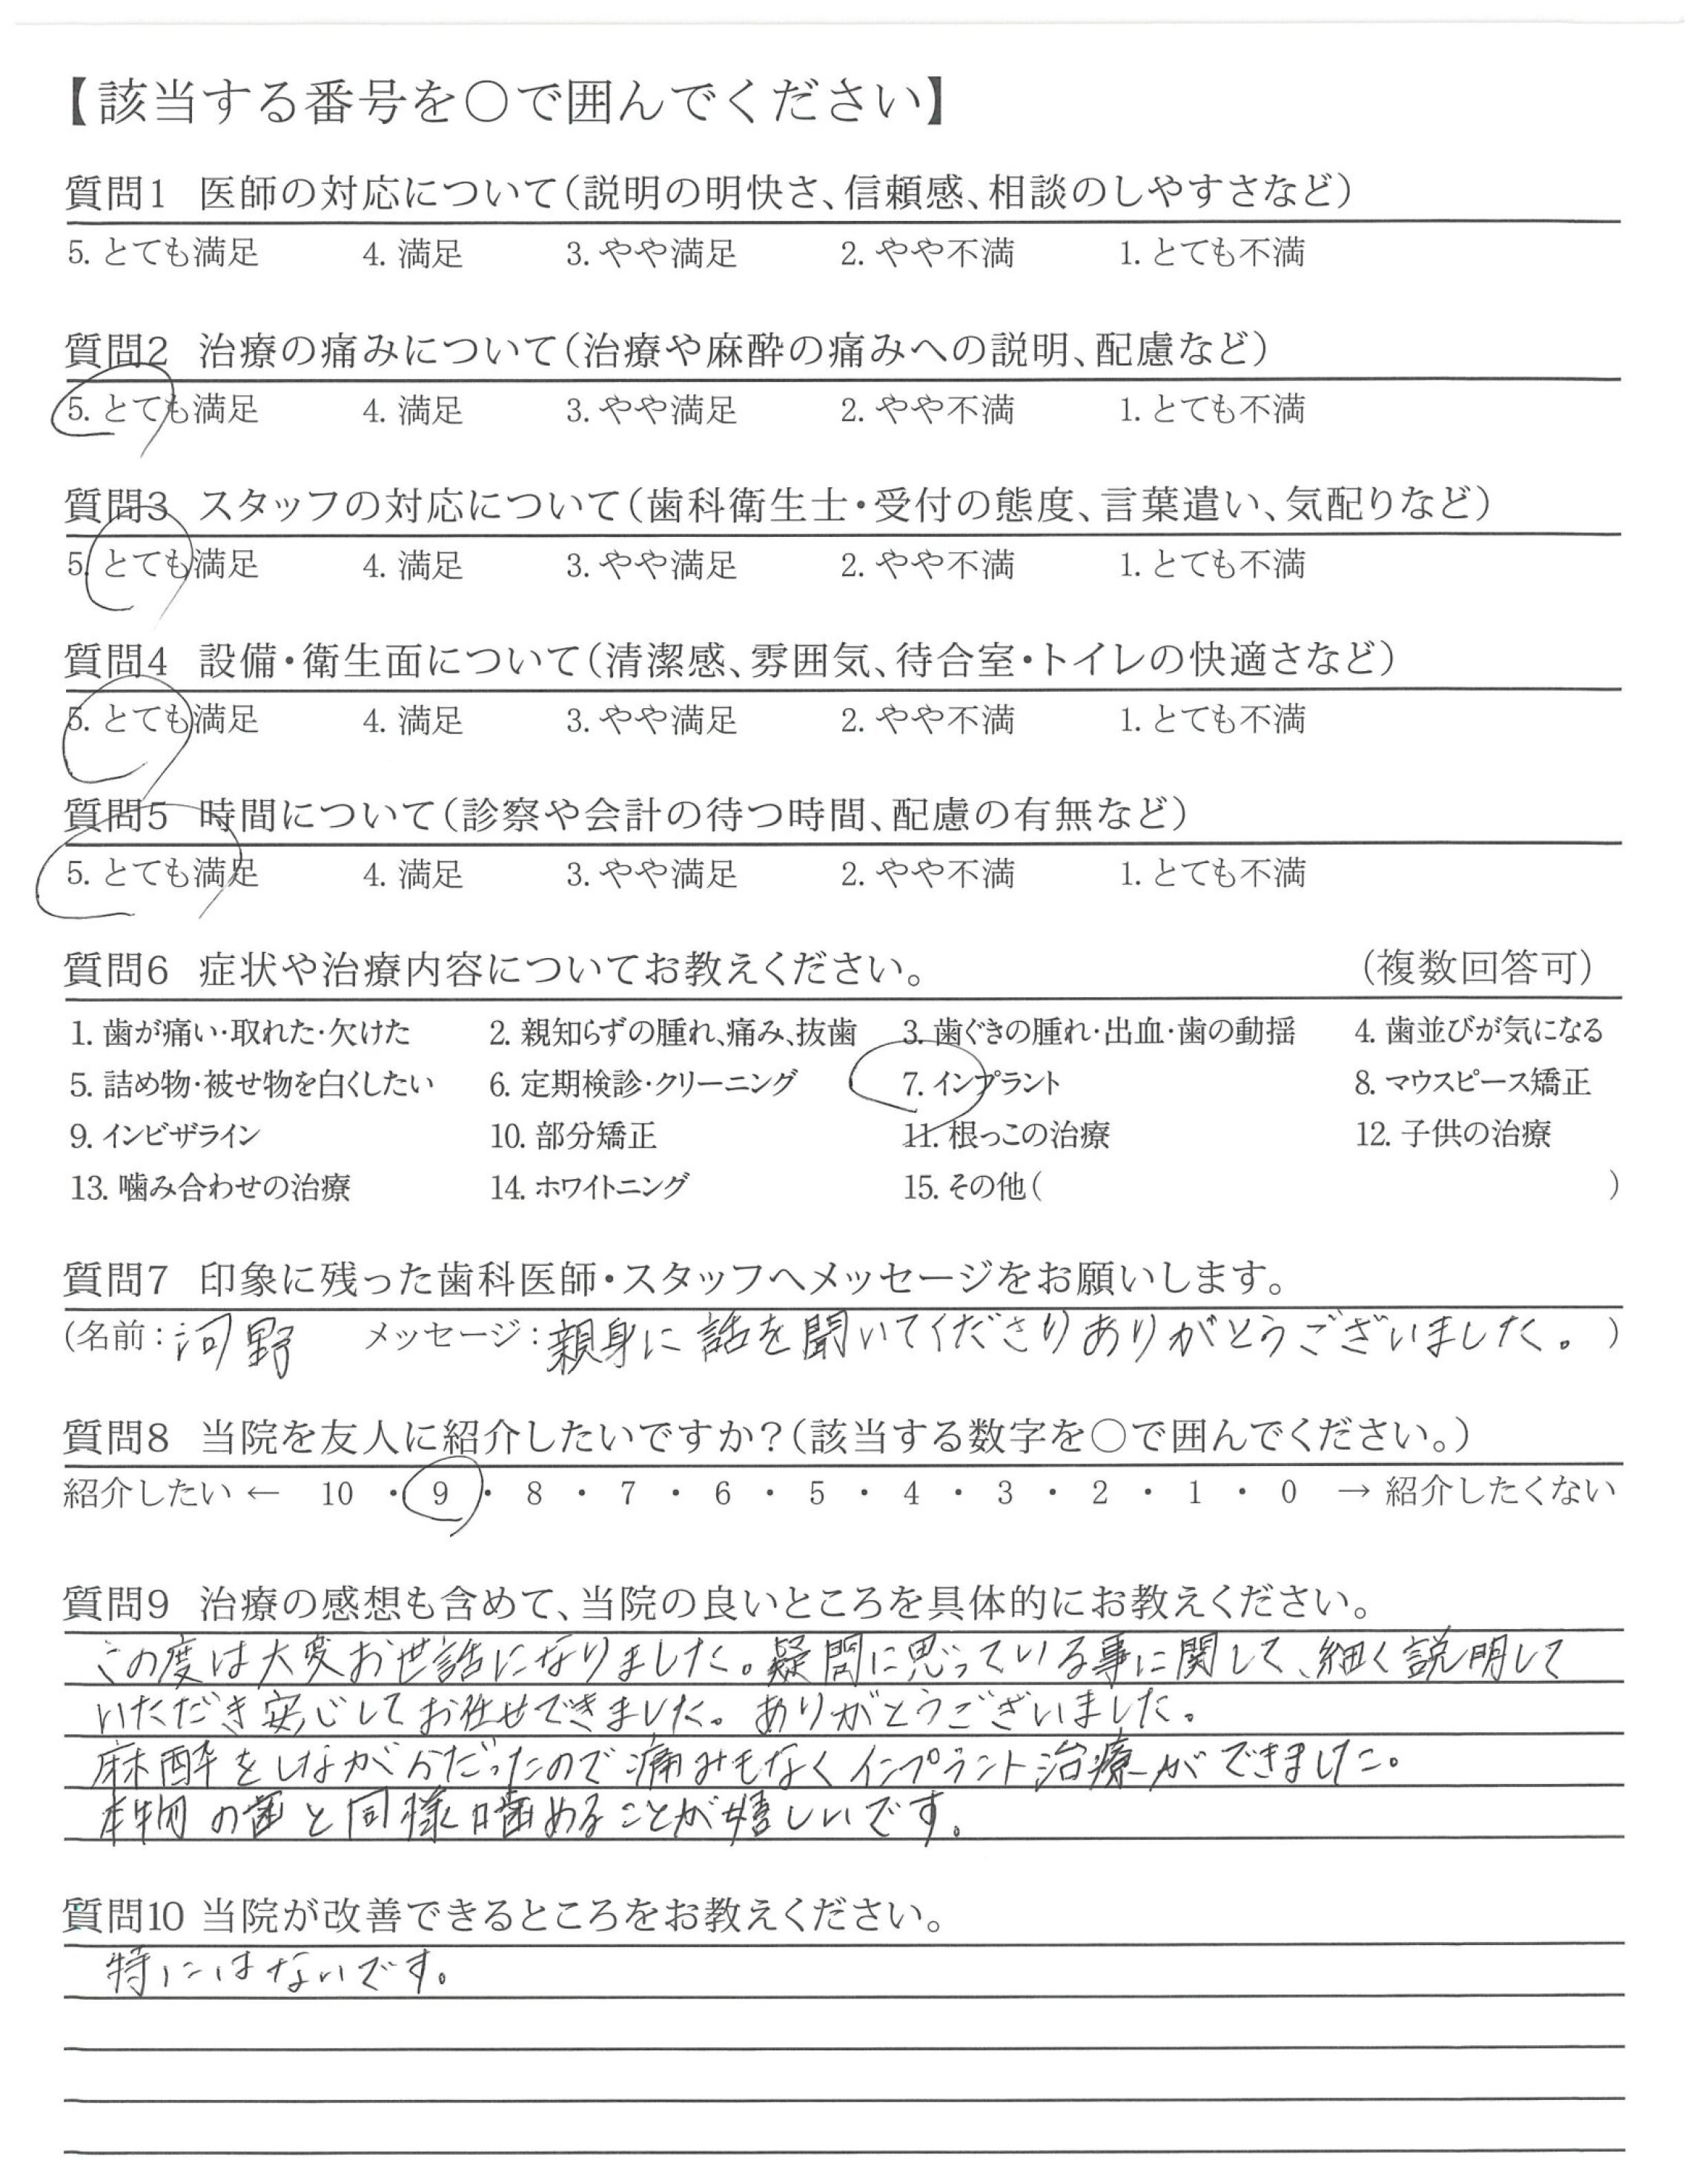 【該当する番号を〇で囲んでください】
質問1 医師の対応について(説明の明快さ、信頼感、相談のしやすさなど)
5. とても満足 4. 満足 3. やや満足 2. やや不満 1. とても不満
質問2 治療の痛みについて(治療や麻酔の痛みへの説明、配慮など)
5. とても満足 4. 満足 3. やや満足 2. やや不満 1. とても不満
質問3 スタッフの対応について(歯科衛生士・受付の態度、言葉遣い、気配りなど)
5. とても満足 4. 満足 3. やや満足 2. やや不満 1. とても不満
質問4 設備・衛生面について(清潔感、雰囲気、待合室・トイレの快適さなど)
5. とても満足 4. 満足 3. やや満足 2. やや不満 1. とても不満
質問5 時間について(診察や会計の待つ時間、配慮の有無など)
5. とても満足 4. 満足 3. やや満足 2. やや不満 1. とても不満
質問6 症状や治療内容についてお教えください。 (複数回答可)
1. 歯が痛い・取れた・欠けた 2. 親知らずの腫れ、痛み、抜歯 3. 歯ぐきの腫れ・出血・歯の動揺 4. 歯並びが気になる
5. 詰め物・被せ物を白くしたい 6. 定期検診・クリーニング 7. インプラント 8. マウスピース矯正
9. インビザライン 10. 部分矯正 11. 根っこの治療 12. 子供の治療
13. 噛み合わせの治療 14. ホワイトニング 15. その他( )
質問7 印象に残った歯科医師・スタッフへメッセージをお願いします。
(名前:河野 メッセージ:親身に話を聞いてくださりありがとうございました。)
質問8 当院を友人に紹介したいですか?(該当する数字を〇で囲んでください。)
紹介したい ← 10 ・ 9 ・ 8 ・ 7 ・ 6 ・ 5 ・ 4 ・ 3 ・ 2 ・ 1 ・ 0 → 紹介したくない
質問9 治療の感想も含めて、当院の良いところを具体的にお教えください。
この度は大変お世話になりました。疑問に思っている事に関して、細く説明して
いただき安心してお任せできました。ありがとうございました。
麻酔をしながらだったので痛みもなくインプラント治療ができました。
本物の歯と同様噛めることが嬉しいです。
質問10 当院が改善できるところをお教えください。
特にはないです。